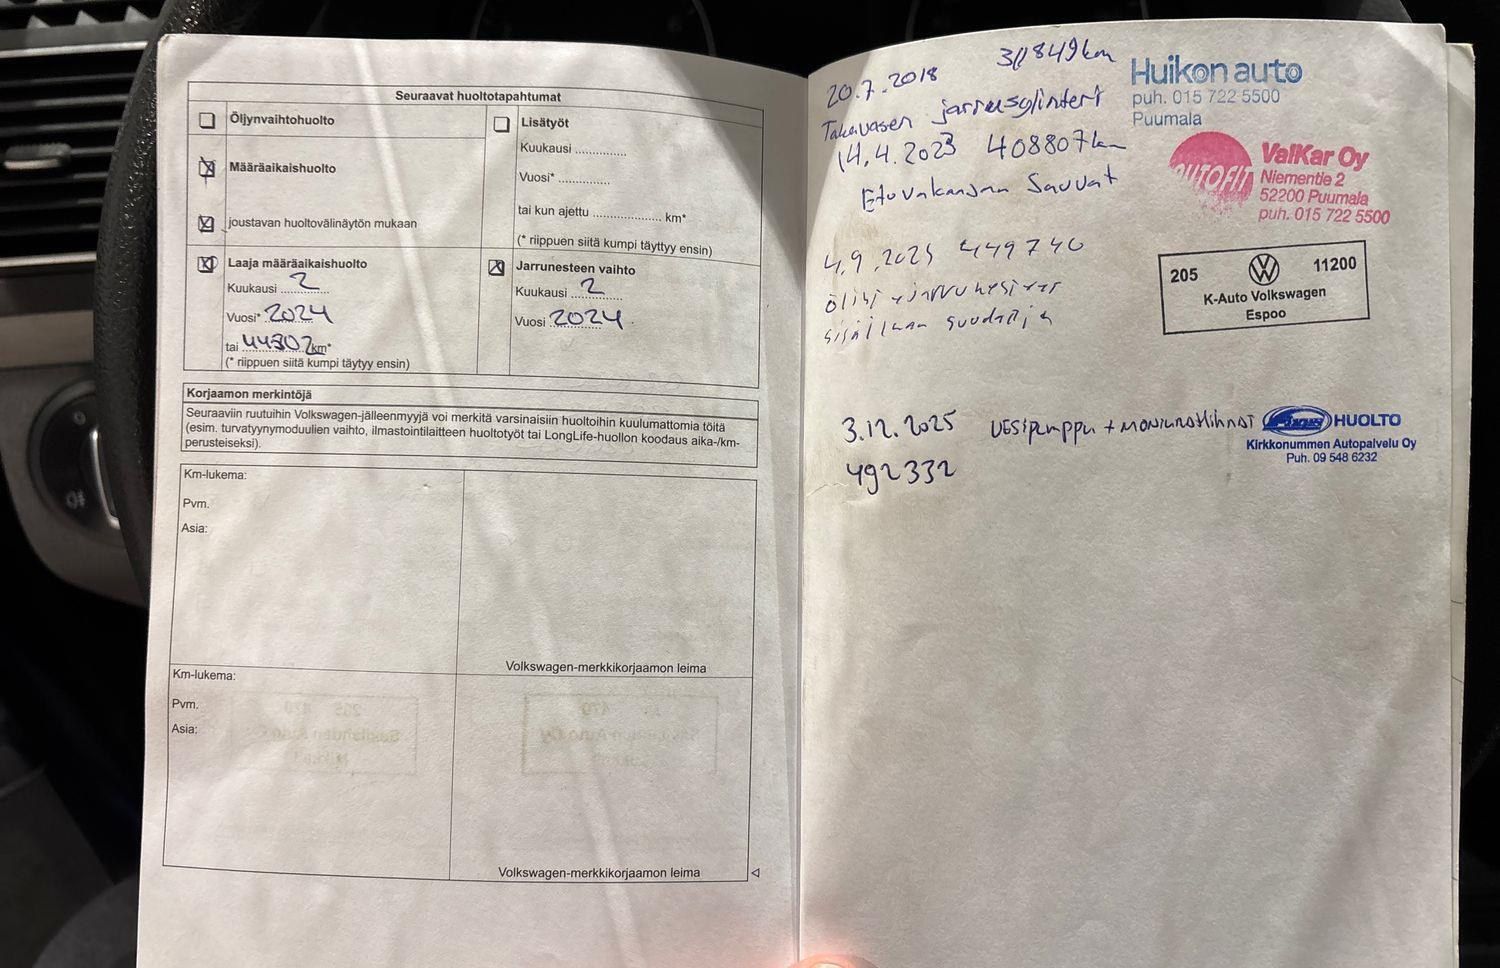 Seuraavat huoltotapahtumat
Öljynvaihtohuolto
Määräaikaishuolto
joustavan huoltovälinäytön mukaan
Lisätyöt
Kuukausi
Vuosi*
tai kun ajettu km*
(* riippuen siitä kumpi täyttyy ensin)
Laaja määräaikaishuolto
Kuukausi 2
Vuosi* 2024
tai 44302 km*
(* riippuen siitä kumpi täytyy ensin)
Jarrunesteen vaihto
Kuukausi 2
Vuosi 2024
Korjaamon merkintöjä
Seuraaviin ruutuihin Volkswagen-jälleenmyyjä voi merkitä varsinaisiin huoltoihin kuulumattomia töitä
(esim. turvatyynymoduulien vaihto, ilmastointilaitteen huoltotyöt tai LongLife-huollon koodaus aika-/km-
perusteiseksi).
Km-lukema:
Pvm.
Asia:
Volkswagen-merkkikorjaamon leima
Km-lukema:
Pvm.
Asia:
Volkswagen-merkkikorjaamon leima
20.7.2018
Takavasen jarrusylinteri
Huikon auto
puh. 015 722 5500
Puumala
14.4.2023 408807 km
AUTOFIT
ValKar Oy
Niementie 2
52200 Puumala
puh. 015 722 5500
4.9.2025 449740
205 11200
K-Auto Volkswagen
Espoo
3.12.2025 VESIPUMPPU + MONIURAHIHNAT
492332
HUOLTO
Kirkkonummen Autopalvelu Oy
Puh. 09 548 6232